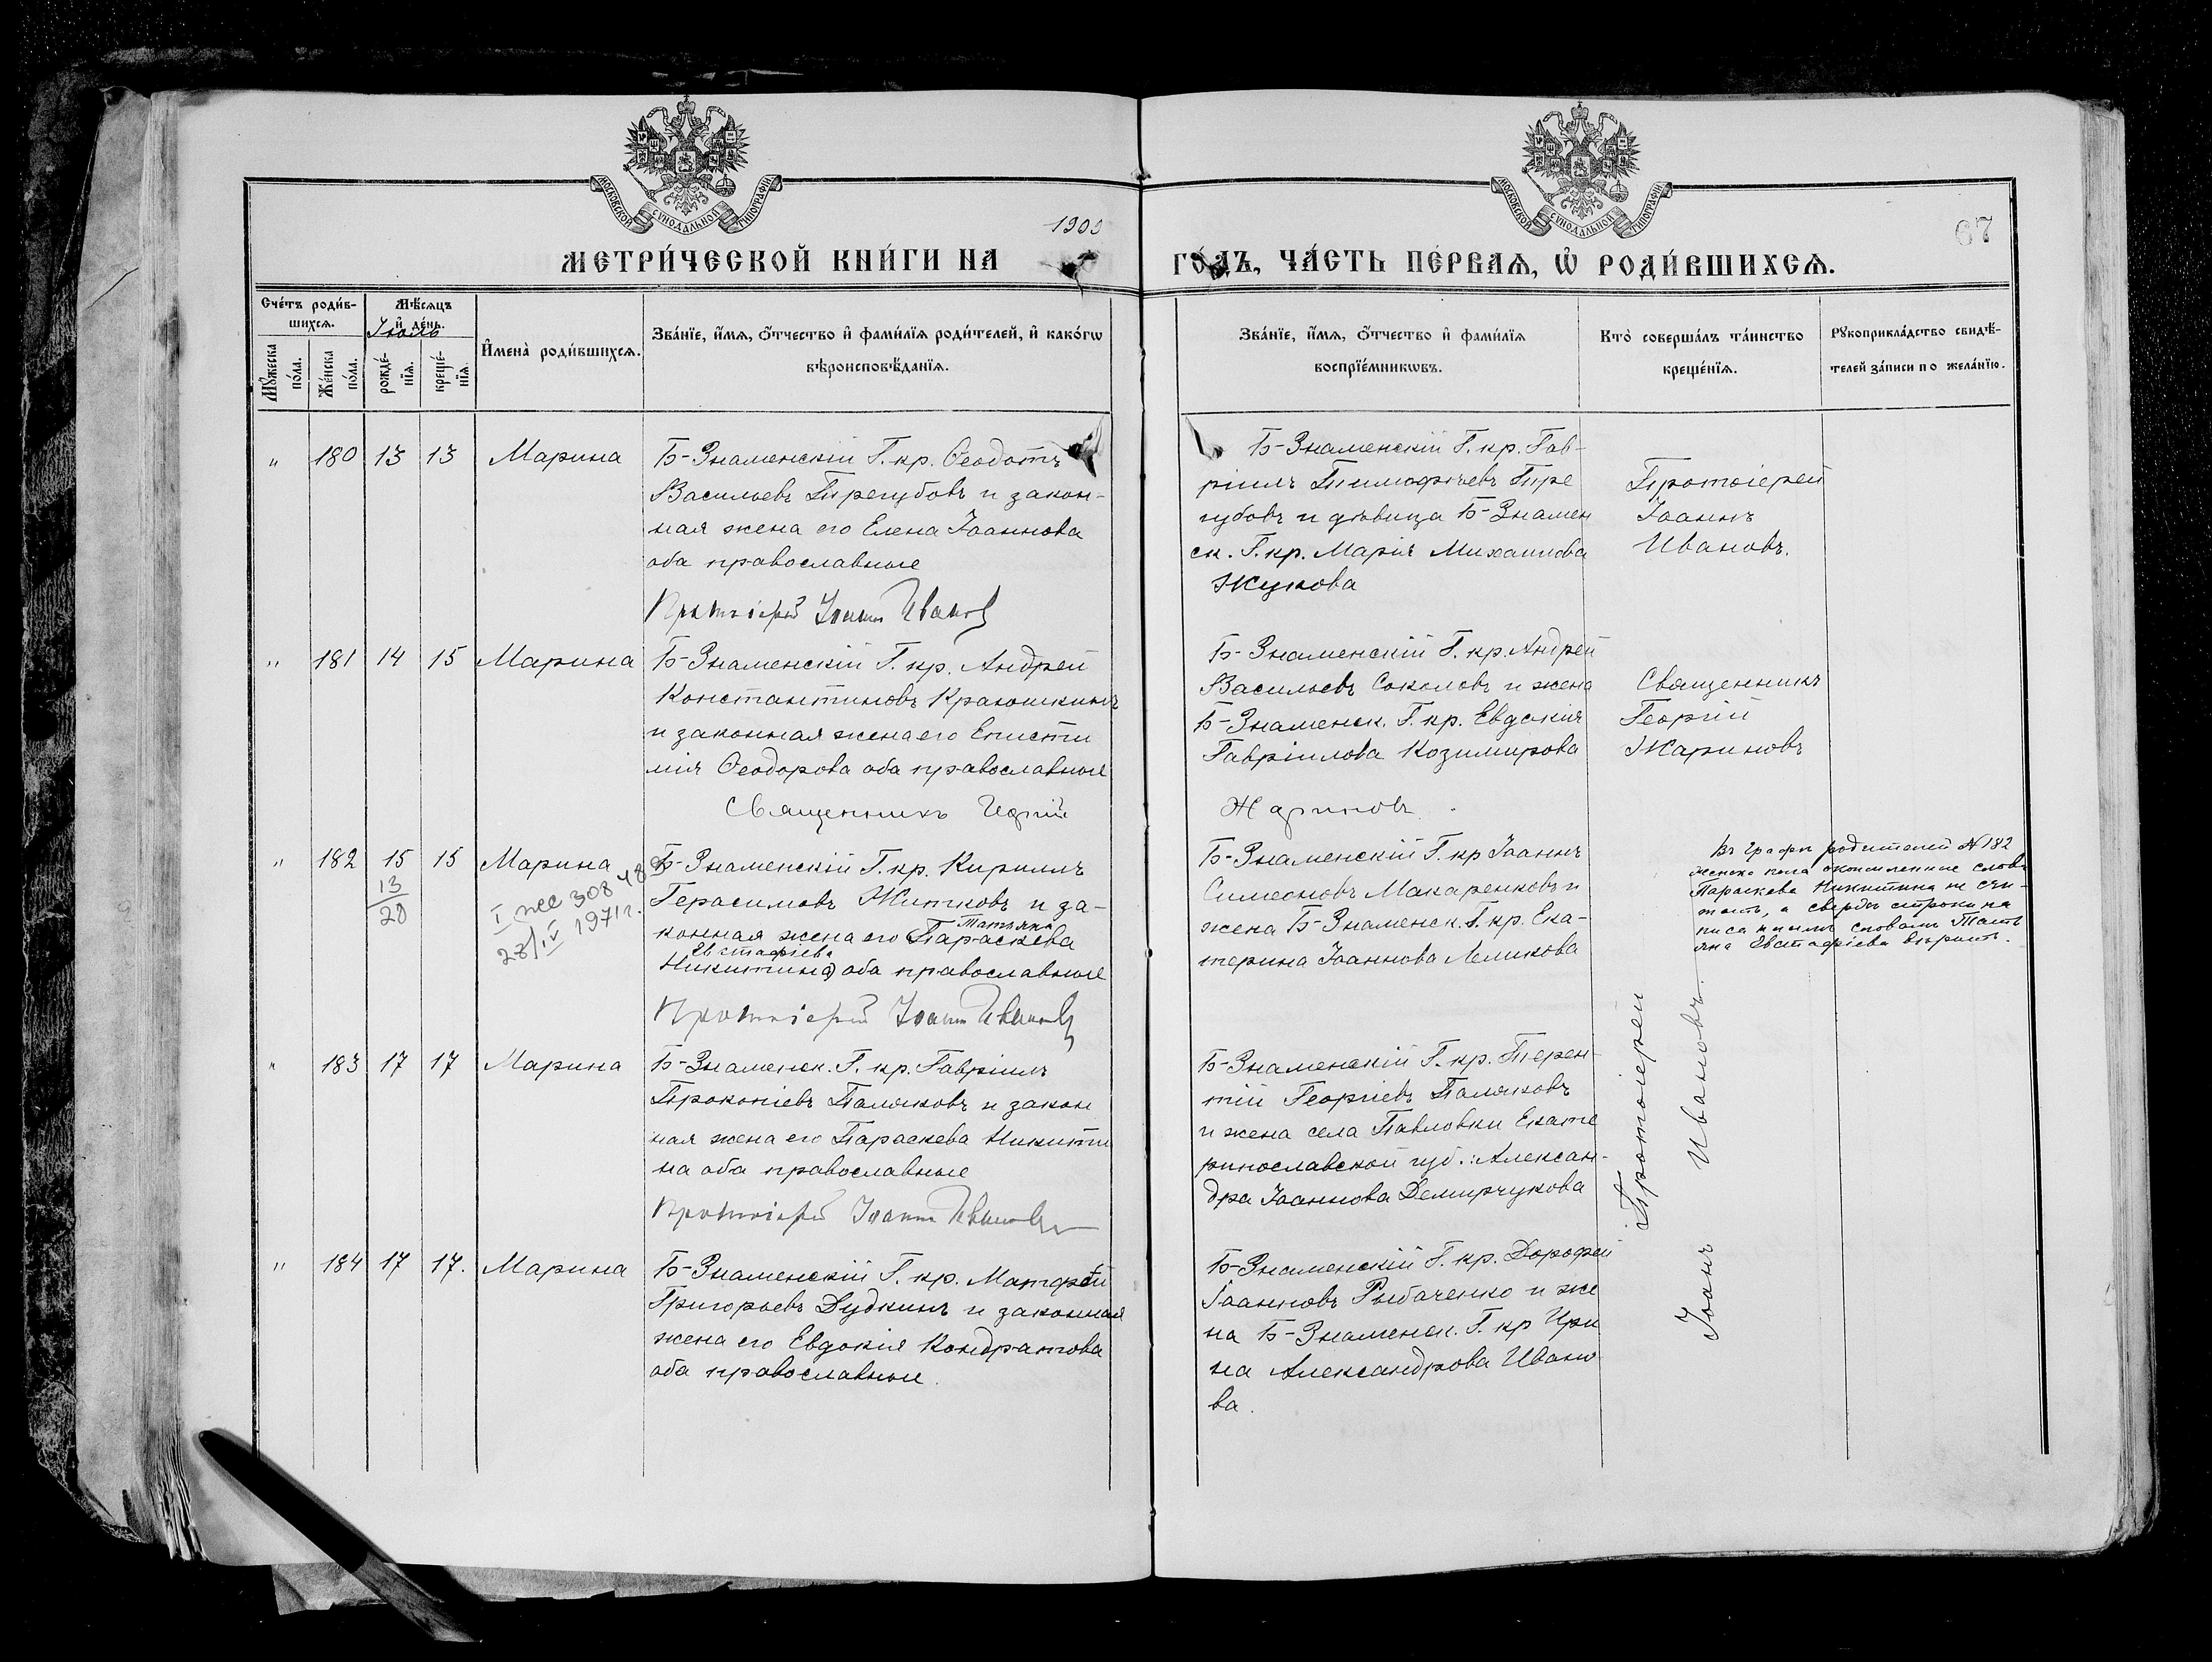 МОСКОВСКОЙ СѴНОДАЛЬНОЙ ТИПОГРАФІИ
МОСКОВСКОЙ СѴНОДАЛЬНОЙ ТИПОГРАФІИ
67
МЕТРИ́ЧЕСКОЙ КНИ́ГИ НА
ГО́ДЪ, ЧА́СТЬ ПЕ́РВАѦ, Ѡ҆ РОДИ́ВШИХСѦ.
Сче́тъ роди́в-
шихсѧ.
Мѣ́сѧцъ
и҆ де́нь.
Іюль
Мꙋ́жеска
по́ла.
Же́нска
по́ла.
рожде́-
нїѧ.
креще́-
нїѧ.
И҆мена̀ роди́вшихсѧ.
Зва́нїе, и҆́мѧ, ѻ҆́тчество и҆ фами́лїѧ роди́телей, и҆ како́гѡ
вѣроисповѣ́данїѧ.
Зва́нїе, и҆́мѧ, ѻ҆́тчество и҆ фами́лїѧ
воспрїе́мникѡвъ.
Кто̀ соверша́лъ та́инство
креще́нїѧ.
Рꙋкоприкла́дство свидѣ́-
телей за́писи по жела́нїю.
" 180 13 13 Марина
Б-Знаменскій Г. кр. Ѳеодотъ
Васильевъ Трегубовъ и закон-
ная жена его Елена Іоаннова
оба православные
Протоіерей Іоаннъ Ивановъ
Б-Знаменскій Г. кр. Гав-
ріилъ Тимофѣевъ Тре
губовъ и дѣвица Б-Знамен
ск. Г. кр. Марія Михаилова
Жукова
Протоіерей
Іоаннъ
Ивановъ.
" 181 14 15 Марина
Б-Знаменскій Г. кр. Андрей
Константиновъ Краюшкинъ
и законная жена его Еписти
мія Ѳеодорова оба православные
Священникъ Георгій
Б-Знаменскій Г. кр. Андрей
Васильевъ Соколовъ и жена
Б-Знаменск. Г. кр. Евдокія
Гавріилова Козимирова
Жариновъ
Священникъ
Георгій
Жариновъ
" 182 15 15 Марина
13
28
I жс 308
28/IV 1971г.
Б-Знаменскій Г. кр. Кириллъ
Герасимовъ Житковъ и за-
Татьяна
конная жена его (Параскева
Евстафіева
Никитина) оба православные
Протоіерей Іоаннъ Ивановъ
Б-Знаменскій Г. кр Іоаннъ
Симеоновъ Макаренковъ и
жена Б-Знаменск. Г. кр. Ека-
терина Іоаннова Лемикова
Въ графѣ родителей №182
женска пола слова
Параскева Никитина не счи-
тать, а сверхъ строки на
писаннымъ словамъ Тать
яна Евстафіева вѣрить.
" 183 17 17 Марина
Б-Знаменск. Г. кр. Гавріилъ
Прокопіевъ Поляковъ и закон
ная жена его Параскева Никити
на оба православные
Протоіерей Іоаннъ Ивановъ
Б-Знаменскій Г. кр. Терен-
тій Георгіевъ Поляковъ
и жена села Павловки Екате
ринославской губ. Алексан-
дра Іоаннова Демирчукова
Протоіерей
Іоаннъ Ивановъ.
" 184 17 17. Марина
Б-Знаменскій Г. кр. Матфей
Григорьевъ Дудкинъ и законная
жена его Евдокія Кондратова
оба православные.
Б-Знаменскій Г. кр. Дорофей
Іоанновъ Рыбаченко и же
на Б-Знаменск. Г. кр Ири
на Александрова Ивано
ва.